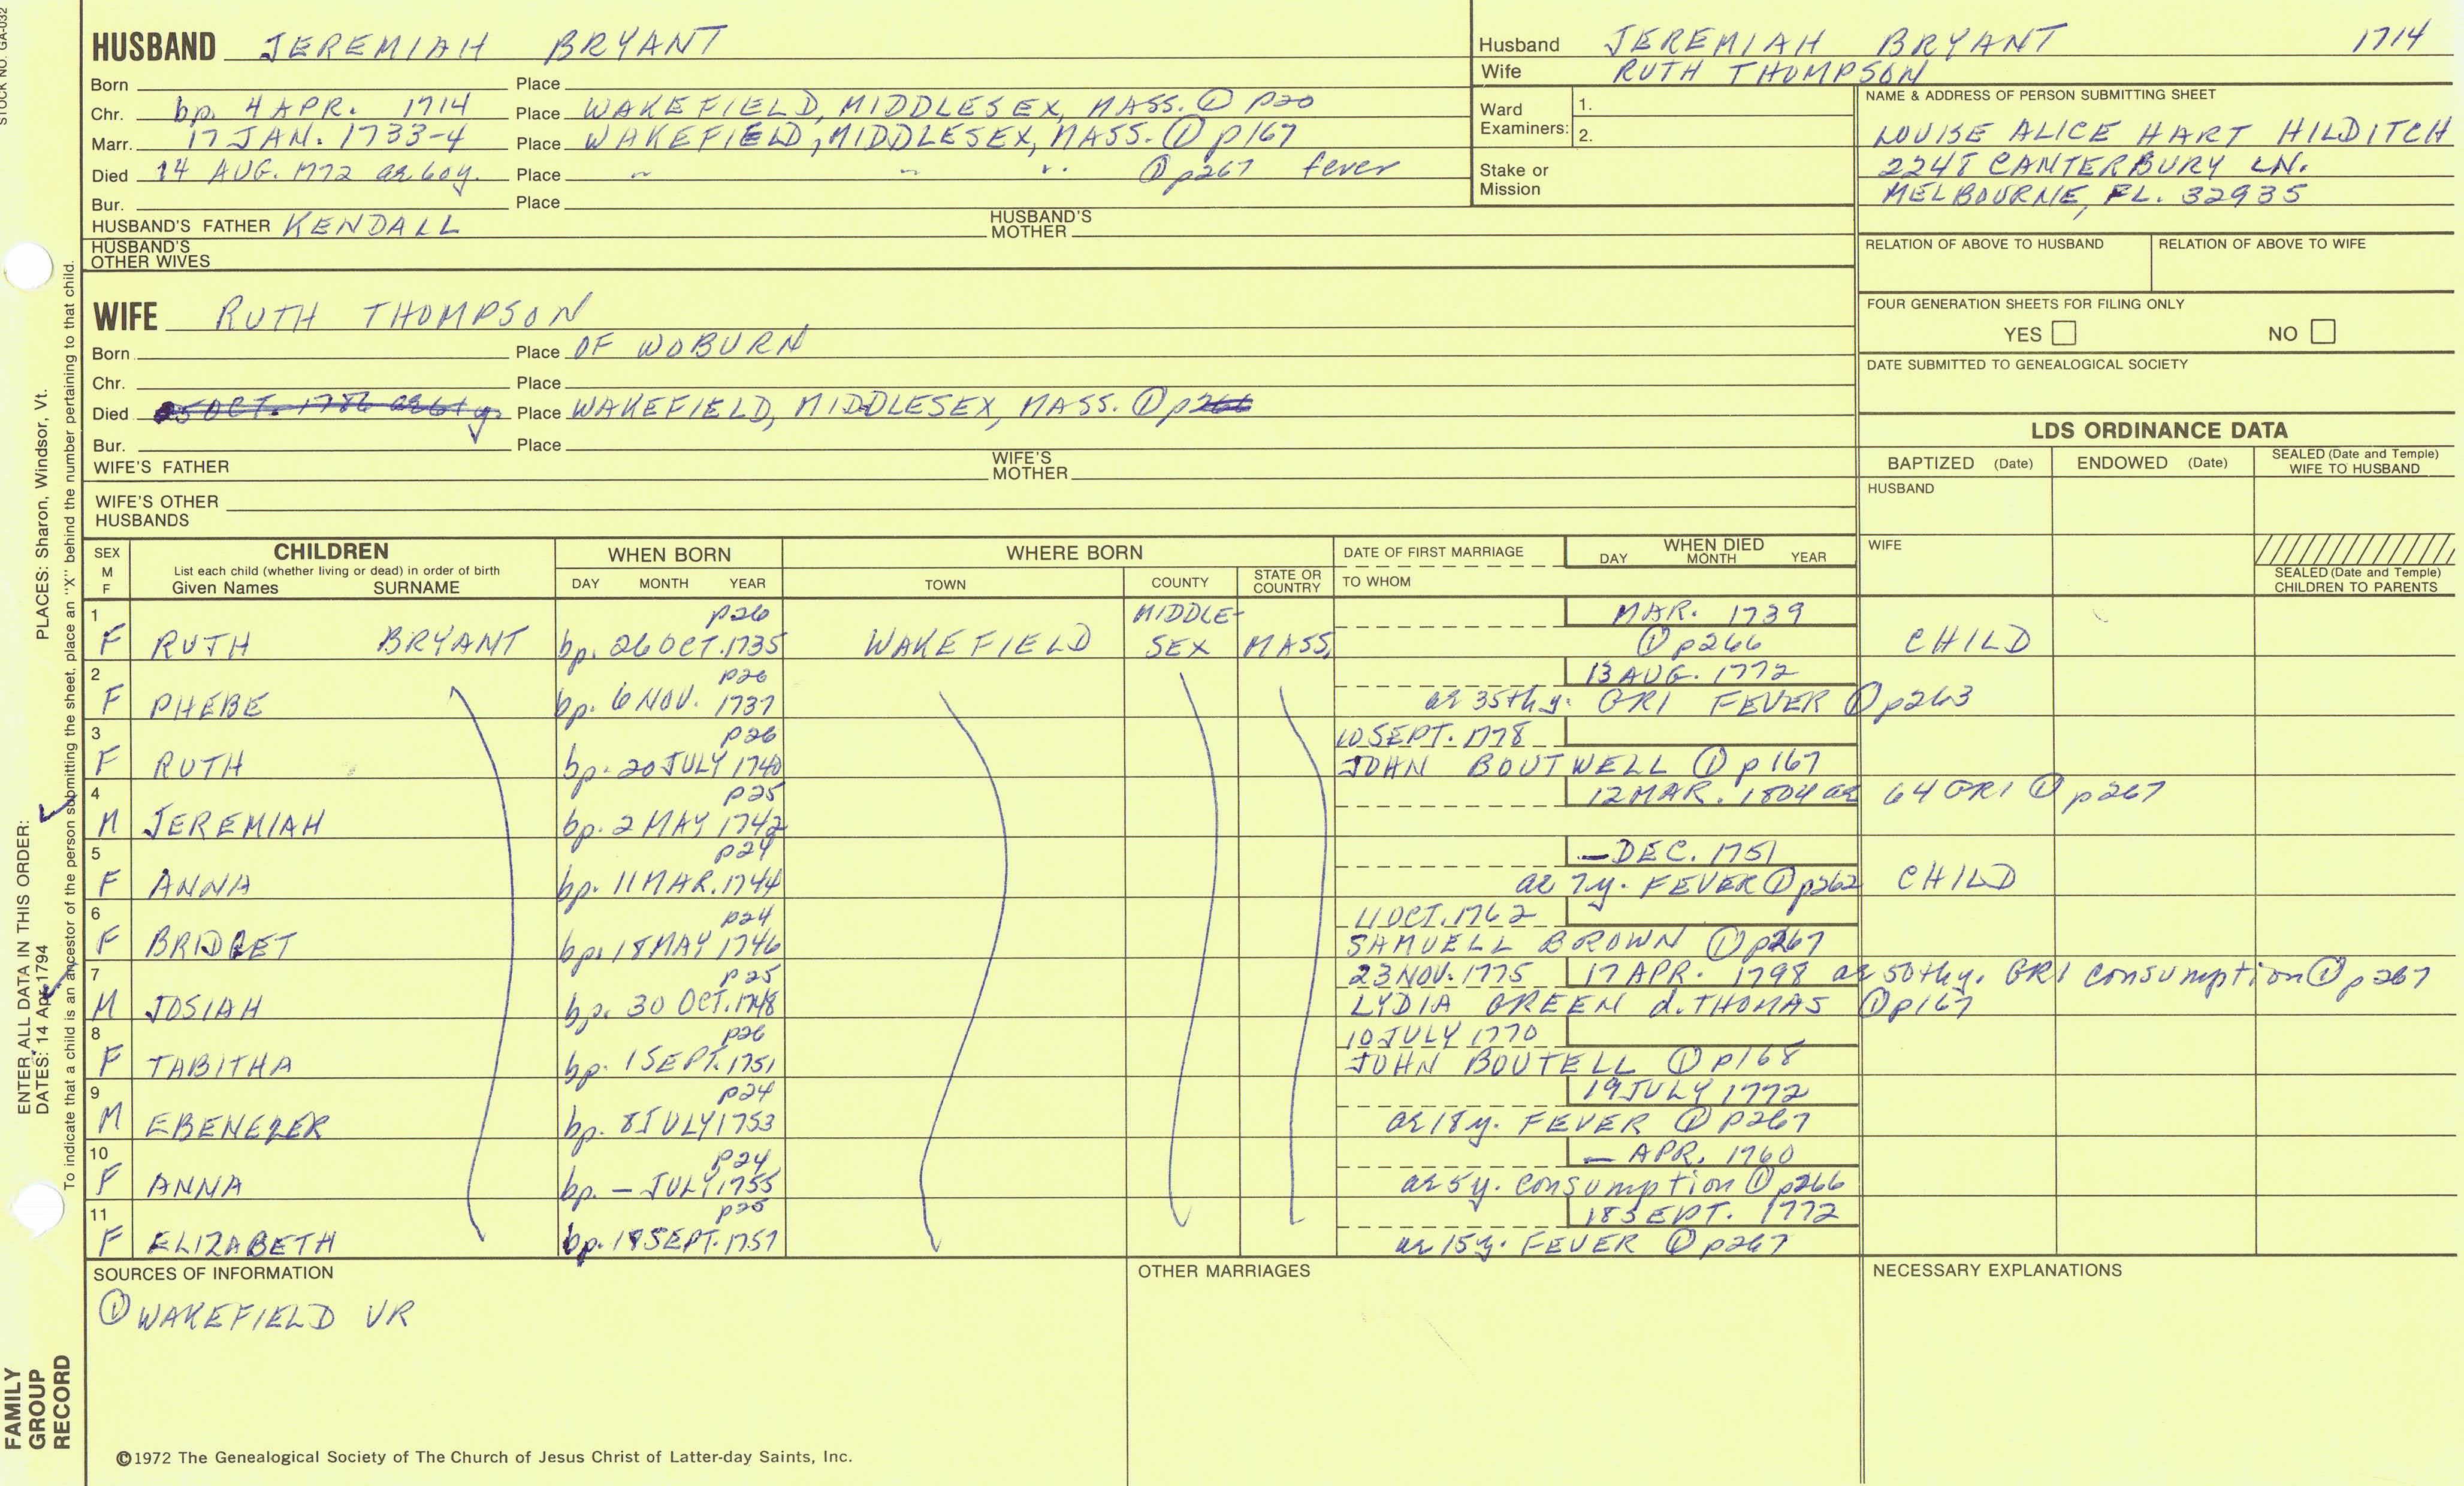 STOCK NO. GA-032
HUSBAND JEREMIAH BRYANT
Born Place
Chr. bp. 4 APR. 1714 Place WAKEFIELD, MIDDLESEX, MASS. ① p20
Marr. 17 JAN. 1733-4 Place WAKEFIELD, MIDDLESEX, MASS. ① p167
Died 14 AUG. 1772 ae 60y. Place " " " ① p267 fever
Bur. Place
HUSBAND'S FATHER KENDALL HUSBAND'S MOTHER
HUSBAND'S OTHER WIVES
Husband JEREMIAH BRYANT 1714
Wife RUTH THOMPSON
Ward Examiners: 1.
2.
Stake or Mission
NAME & ADDRESS OF PERSON SUBMITTING SHEET
LOUISE ALICE HART HILDITCH
2248 CANTERBURY LN.
MELBOURNE, FL. 32935
RELATION OF ABOVE TO HUSBAND RELATION OF ABOVE TO WIFE
FOUR GENERATION SHEETS FOR FILING ONLY
YES NO
DATE SUBMITTED TO GENEALOGICAL SOCIETY
WIFE RUTH THOMPSON
Born Place OF WOBURN
Chr. Place
Died OCT. 1786 Place WAKEFIELD, MIDDLESEX, MASS. ① p266
Bur. Place
WIFE'S FATHER WIFE'S MOTHER
WIFE'S OTHER HUSBANDS
LDS ORDINANCE DATA
BAPTIZED (Date) ENDOWED (Date) SEALED (Date and Temple) WIFE TO HUSBAND
HUSBAND
WIFE
SEALED (Date and Temple) CHILDREN TO PARENTS
SEX M F
CHILDREN
List each child (whether living or dead) in order of birth
Given Names SURNAME
WHEN BORN
DAY MONTH YEAR
WHERE BORN
TOWN COUNTY STATE OR COUNTRY
DATE OF FIRST MARRIAGE
TO WHOM
WHEN DIED
DAY MONTH YEAR
1 p26 MIDDLE- MAR. 1739
F RUTH BRYANT bp. 26 OCT. 1735 WAKEFIELD SEX MASS. ① p266 CHILD
2 p26 13 AUG. 1772
F PHEBE bp. 6 NOV. 1737 ae 35th y. GR1 FEVER ① p263
3 p26 10 SEPT. 1778
F RUTH bp. 20 JULY 1740 JOHN BOUTWELL ① p167
4 p25 12 MAR. 1804 ae 64 GR1 ① p267
M JEREMIAH bp. 2 MAY 1742
5 p24 — DEC. 1751
F ANNA bp. 11 MAR. 1744 ae 7y. FEVER ① p262 CHILD
6 p24 11 OCT. 1762
F BRIDGET bp. 18 MAY 1746 SAMUELL BROWN ① p267
7 p25 23 NOV. 1775 17 APR. 1798 ae 50th y. GR1 consumption ① p267
M JOSIAH bp. 30 OCT. 1748 LYDIA GREEN d. THOMAS ① p167
8 p26 10 JULY 1770
F TABITHA bp. 1 SEPT. 1751 JOHN BOUTELL ① p168
9 p24 19 JULY 1772
M EBENEZER bp. 8 JULY 1753 ae 18y. FEVER ① p267
10 p24 — APR. 1760
F ANNA bp. — JULY 1755 ae 5y. consumption ① p266
11 p25 18 SEPT. 1772
F ELIZABETH bp. 18 SEPT. 1757 ae 15y. FEVER ① p267
SOURCES OF INFORMATION
① WAKEFIELD VR
OTHER MARRIAGES
NECESSARY EXPLANATIONS
©1972 The Genealogical Society of The Church of Jesus Christ of Latter-day Saints, Inc.
FAMILY GROUP RECORD
ENTER ALL DATA IN THIS ORDER:
DATES: 14 Apr 1794
PLACES: Sharon, Windsor, Vt.
To indicate that a child is an ancestor of the person submitting the sheet, place an "X" behind the number pertaining to that child.